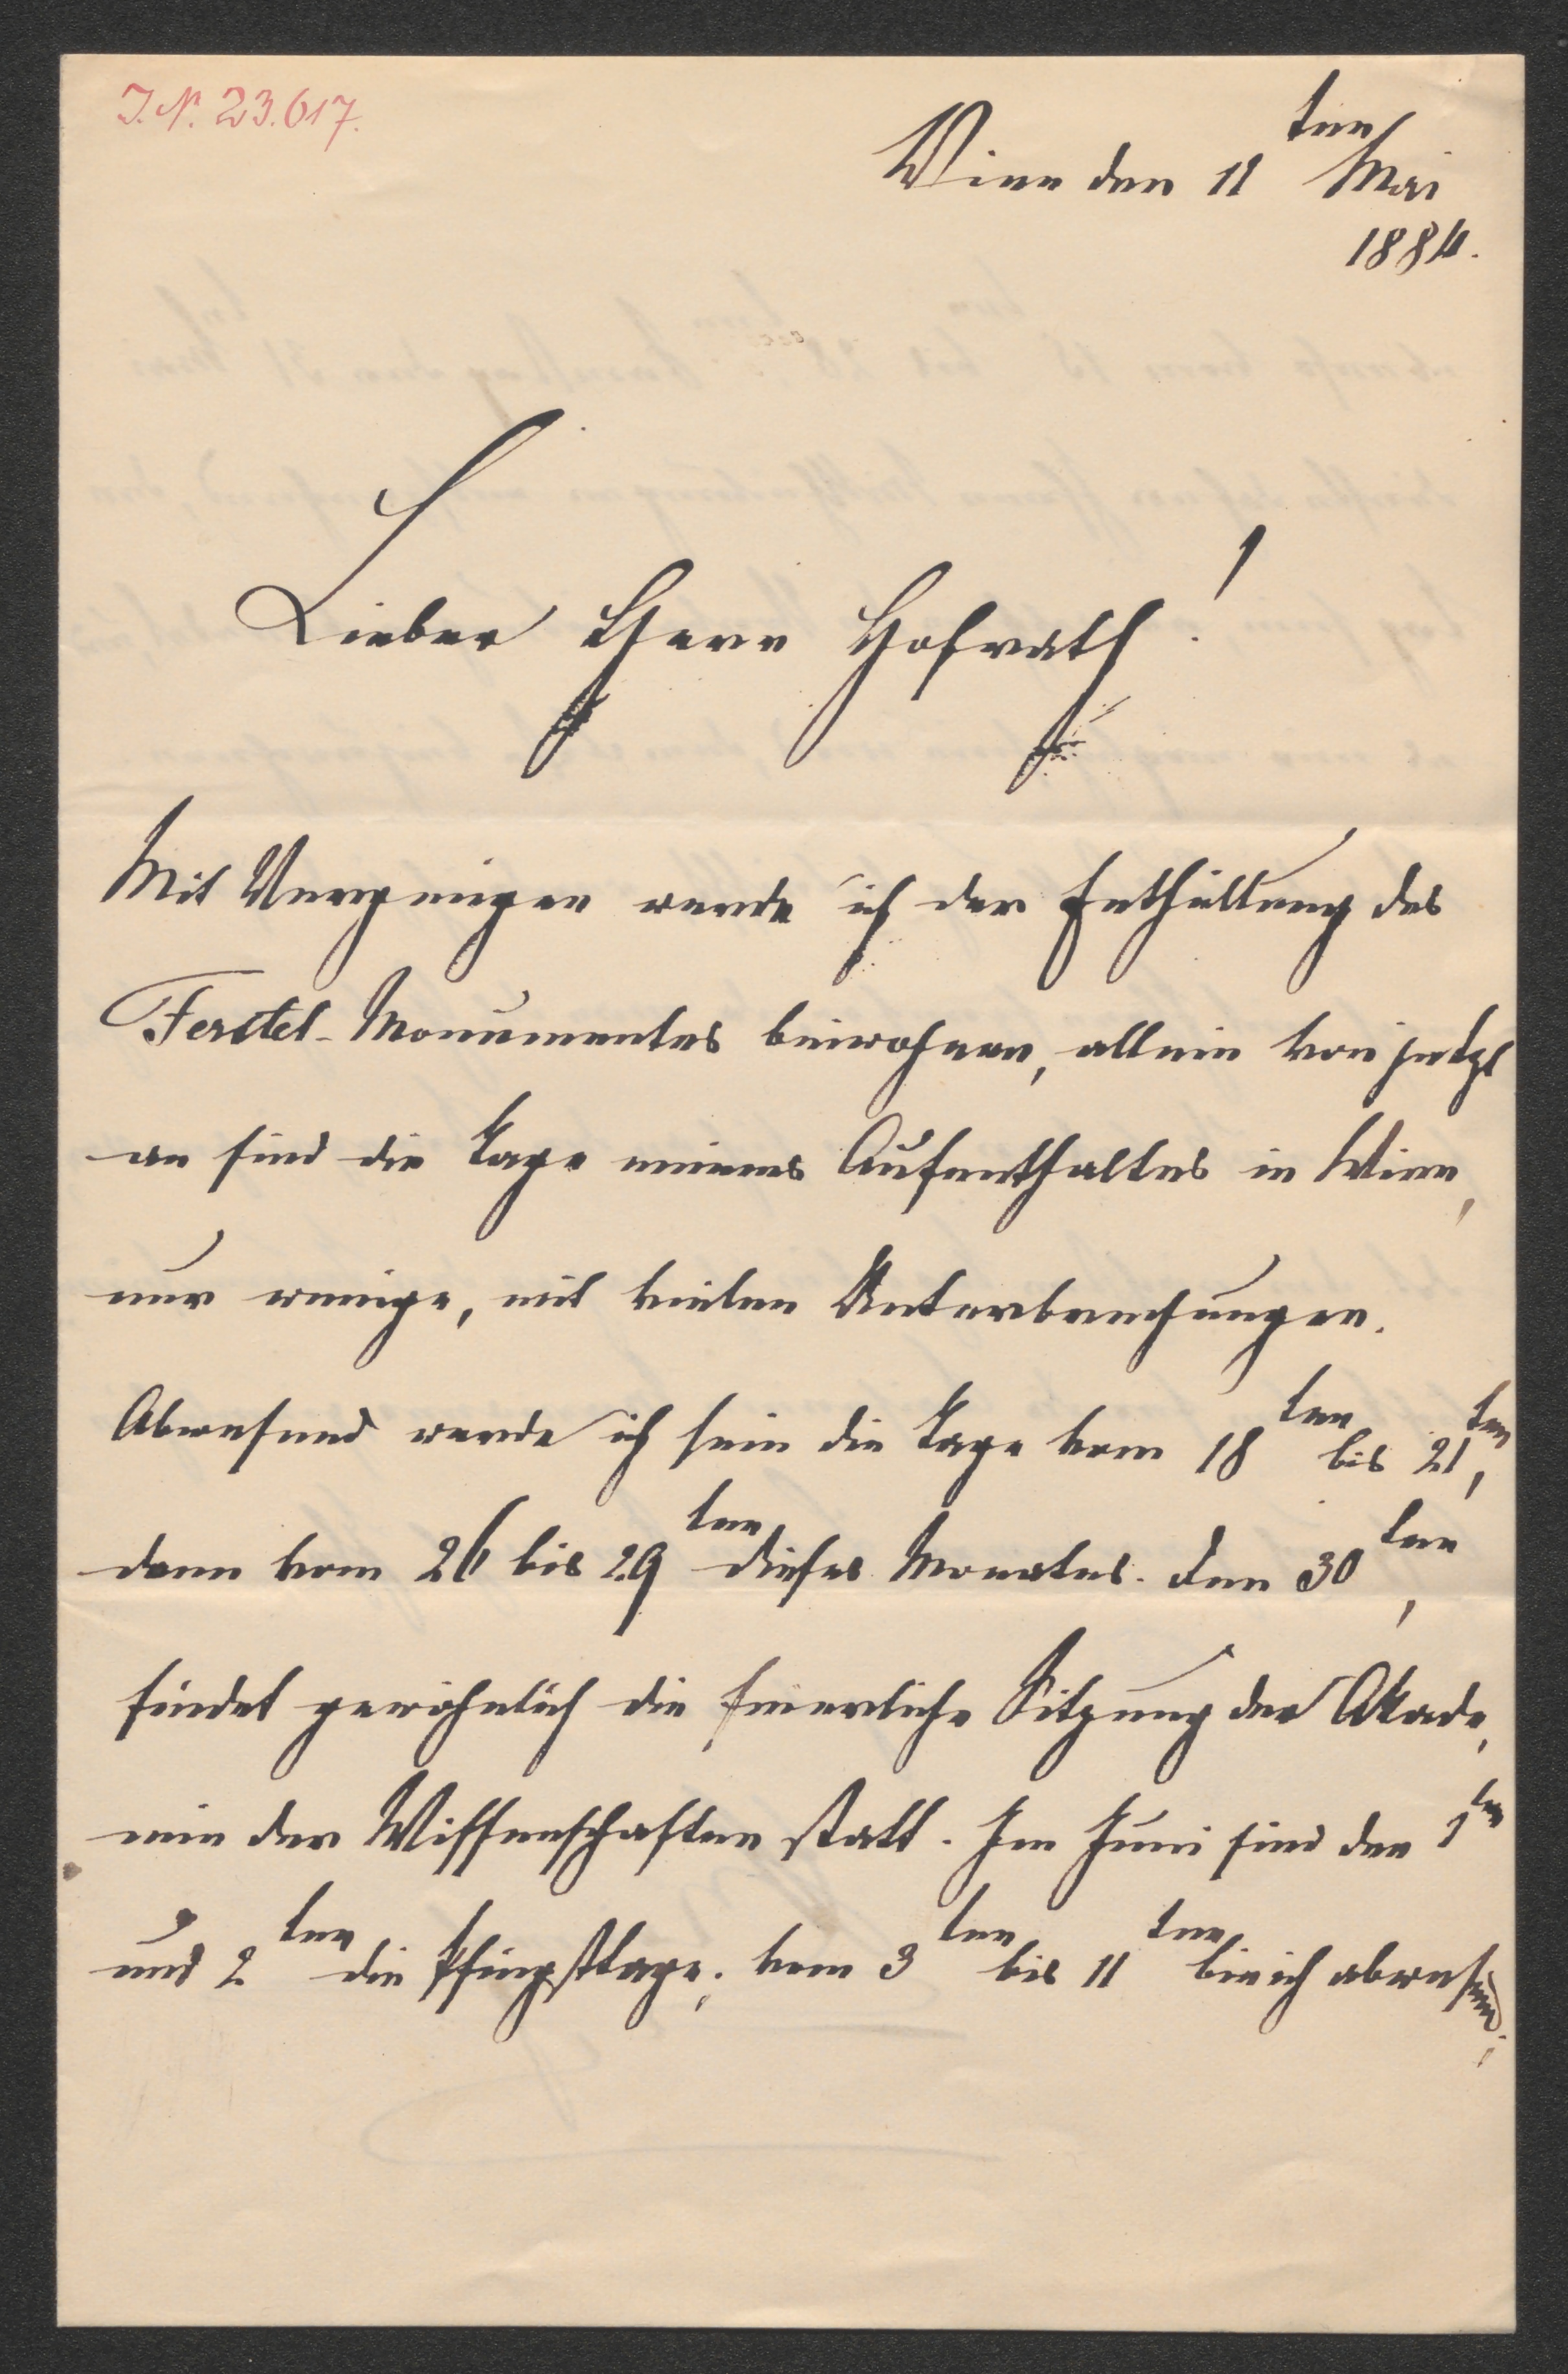 J.N. 23.617.
Wien den 11ten Mai
1884.
Lieber Herr Hofrath!
Mit Vergnügen werde ich der Enthüllung des
Ferstel-Monumentes beiwohnen, allein von jetzt
an sind die Tage meines Aufenthaltes in Wien,
nur wenige, mit vielen Unterbrechungen.
Abwesend werde ich sein die Tage vom 18ten bis 21ten,
dann vom 26 bis 29ten dieses Monates. Den 30ten,
findet gewöhnlich die feierliche Sitzung der Akade,
mie der Wissenschaften statt. Im Juni sind den 1ten
und 2ten die Pfingsttage; vom 3ten bis 11ten bin ich abwesend;